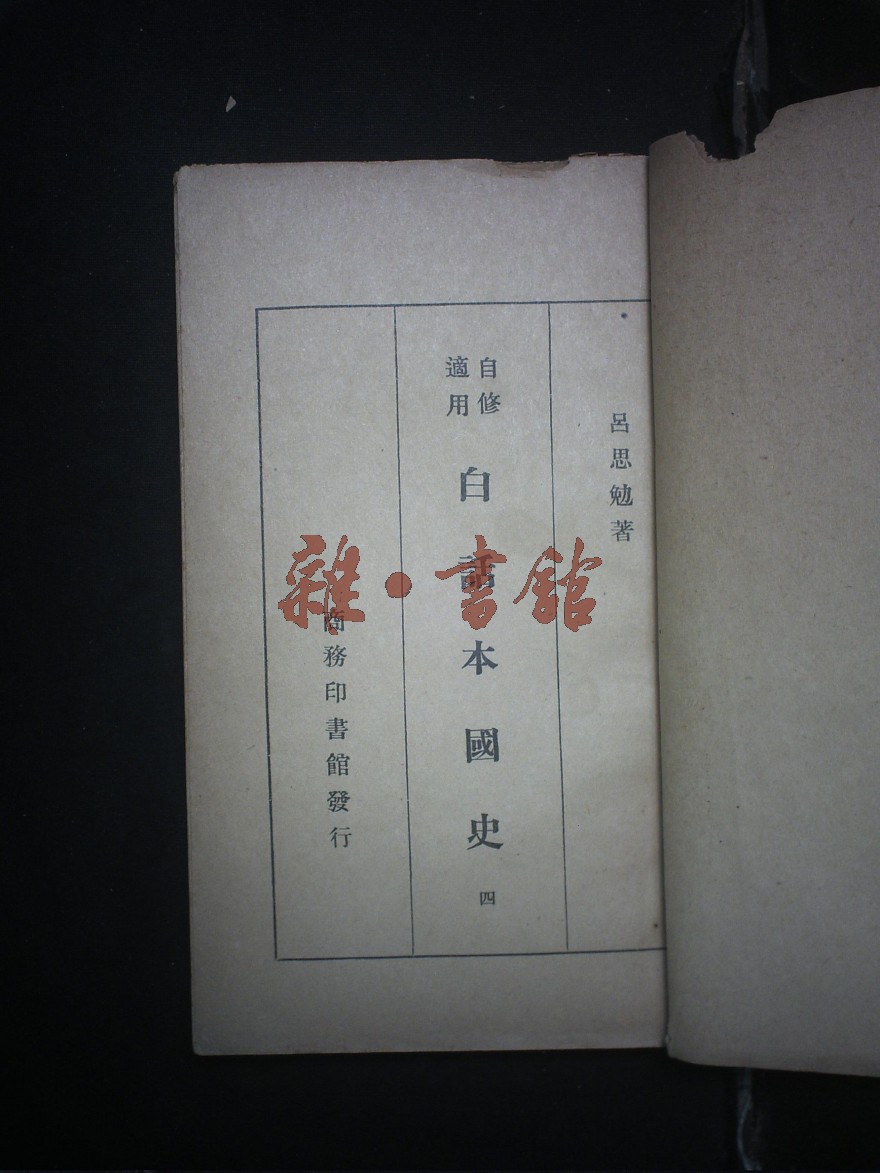 呂思勉著
自修
適用
白話本國史
四
商務印書館發行
雜·書館